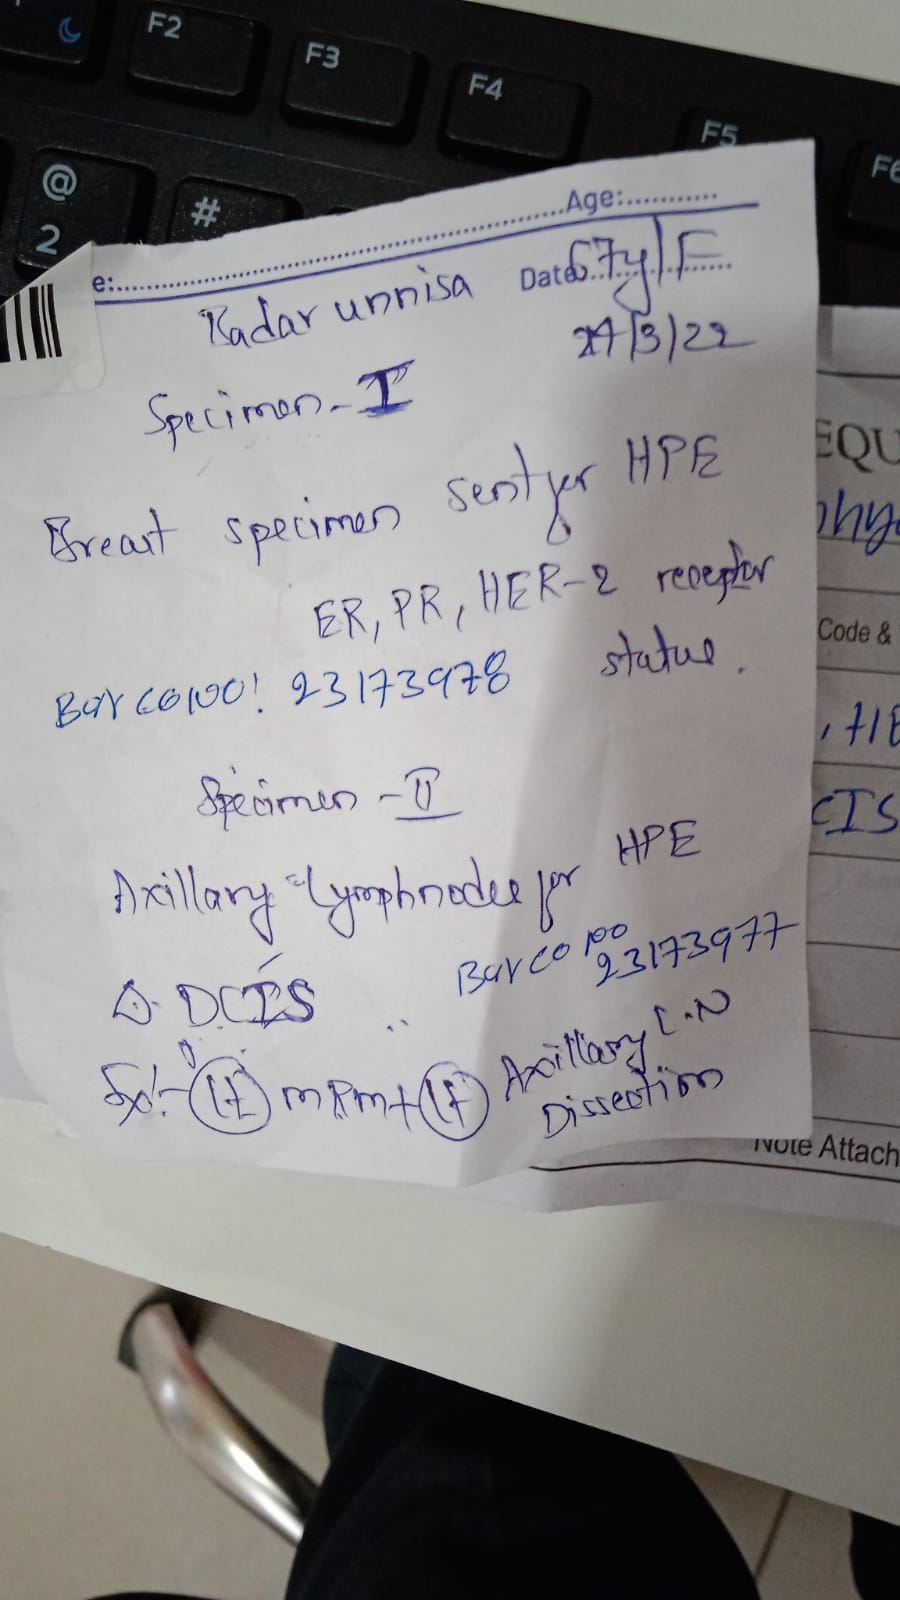 F2
F3
F4
F5
F6
@
2
#
Age:............
e:..............................
Date: 67y/F
Kadar unnisa
24/3/22
Specimen - I
Breast specimen sent for HPE
ER, PR, HER-2 receptor
status.
Bar co no! 23173978
Specimen - II
Axillary Lymphnodes for HPE
Bar co no
23173977
Δ. DCIS
Sx:- (Lt) MRM + (Lt) Axillary L.N
Dissection
EQU
Code &
CIS
Note Attach